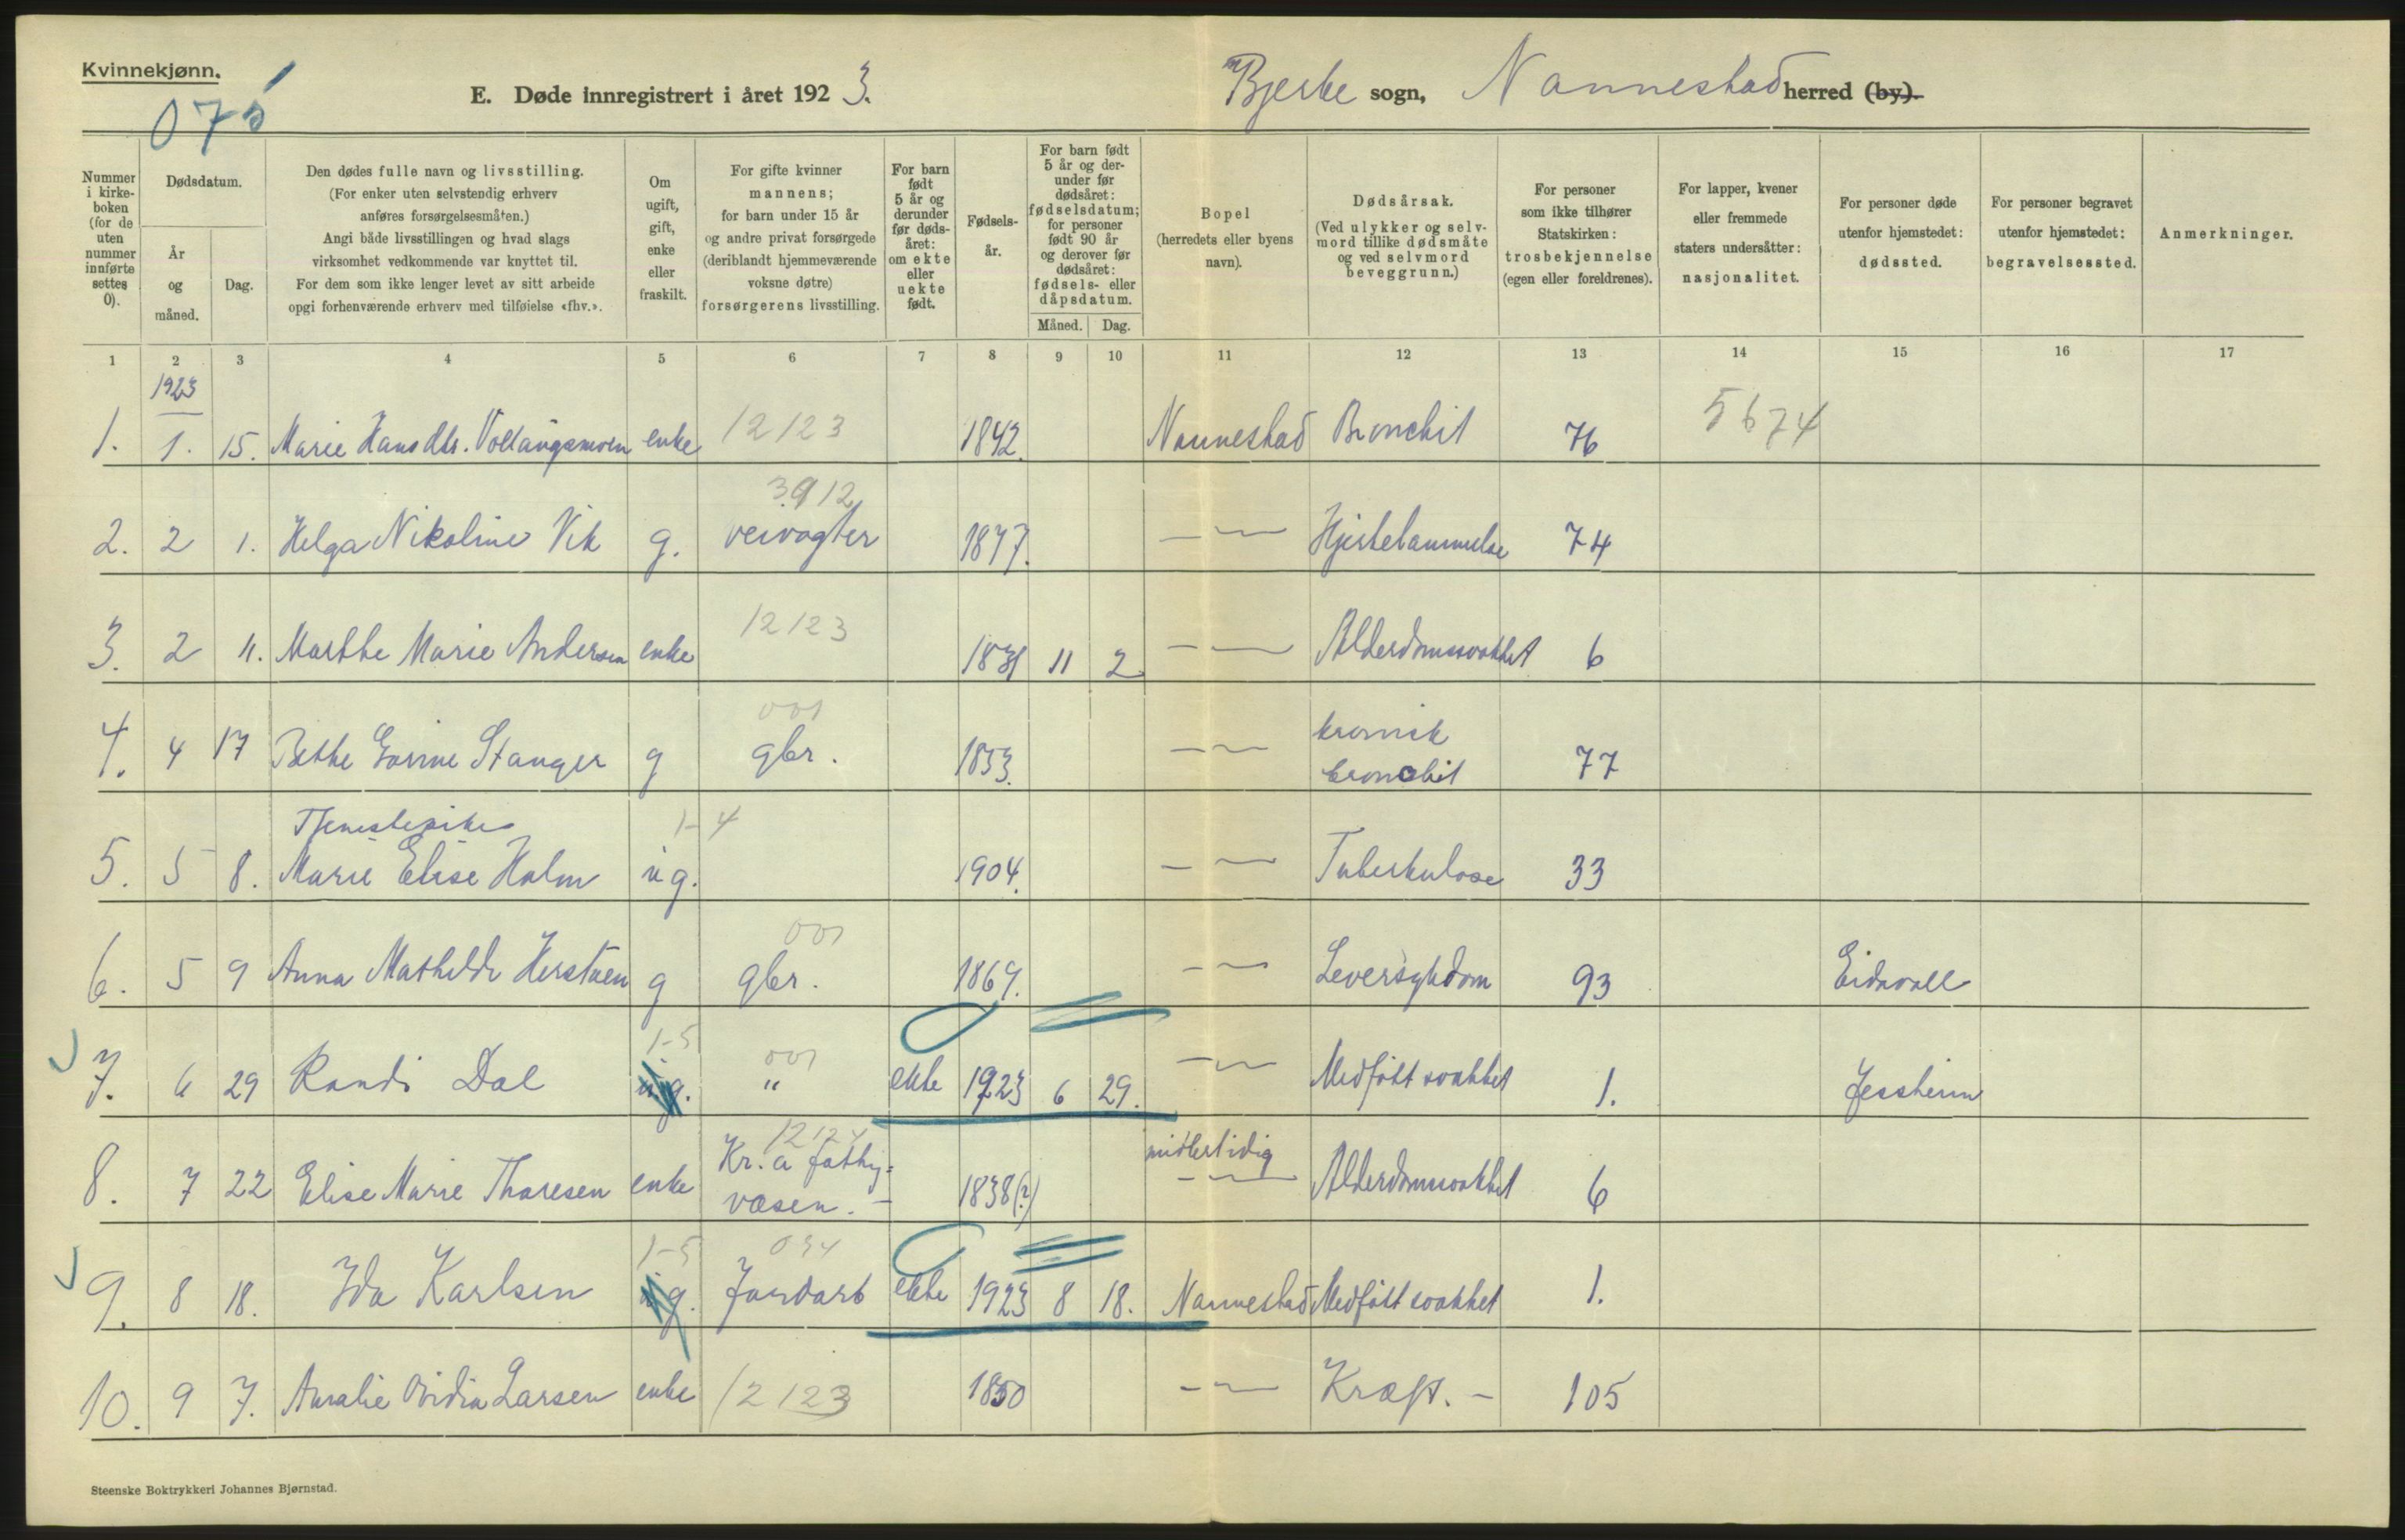 Kvinnekjønn.
E. Døde innregistrert i året 1923.
Bjerke sogn, Nannestad herred (by).
Nummer i kirke-boken (for de uten nummer innførte settes 0).
Dødsdatum.
År og måned.
Dag.
Den dødes fulle navn og livsstilling.
(For enker uten selvstendig erhverv
anføres forsørgelsesmåten.)
Angi både livsstillingen og hvad slags
virksomhet vedkommende var knyttet til.
For dem som ikke lenger levet av sitt arbeide
opgi forhenværende erhverv med tilføielse «fhv.».
Om ugift, gift, enke eller fraskilt.
For gifte kvinner
mannens;
for barn under 15 år
og andre privat forsørgede
(deriblandt hjemmeværende
voksne døtre)
forsørgerens livsstilling.
For barn født 5 år og derunder før døds-året: om ekte eller uekte født.
Fødsels-år.
For barn født 5 år og der-under før dødsåret: fødselsdatum; for personer født 90 år og derover før dødsåret: fødsels- eller dåpsdatum.
Måned. Dag.
Bopel
(herredets eller byens
navn).
Dødsårsak.
(Ved ulykker og selv-
mord tillike dødsmåte
og ved selvmord
beveggrunn.)
For personer
som ikke tilhører
Statskirken:
trosbekjennelse
(egen eller foreldrenes).
For lapper, kvener
eller fremmede
staters undersåtter:
nasjonalitet.
For personer døde
utenfor hjemstedet:
dødssted.
For personer begravet
utenfor hjemstedet:
begravelsessted.
Anmerkninger.
1 2 3 4 5 6 7 8 9 10 11 12 13 14 15 16 17
1923
1. 1. 15. Marie Hansdtr. enke 12123 1842. Nannestad Bronchit 76 5674
3912
2. 2 1. Helga Nikoline Vik g. veivogter 1847. — — Hjertelammelse 74
12123
3. 2 11. Marthe Marie Andersen enke 1831 11 2 — — Alderdomssvakhet 6
001
4. 4 17 Stanger g gbr. 1853. — — kronisk bronchit 77
Tjenestepike 1-4
5. 5 8. Marie Elise Holm ug. 1904. — — Tuberkulose 33
001
6. 5 9 Anna Mathilde Herstuen g gbr. 1869. — — Leversykdom 93 Eidsvoll
1-5 001
7. 6 29 Randi Dal ug. " ekte 1923 6 29. — — Medfødt svakhet 1. Jessheim
8. 7 22 Elise Marie Thoresen enke Kr.a fattig= væsen. — 1838(?) midlertidig — — Alderdomssvakhet 6
1-5
9. 8 18. Ida Karlsen ug. Jordarb ekte 1923 8 18. Nannestad Medfødt svakhet 1.
10. 9 7. Larsen enke 12123 1850 — — Kræft. — 105
Steenske Boktrykkeri Johannes Bjørnstad.